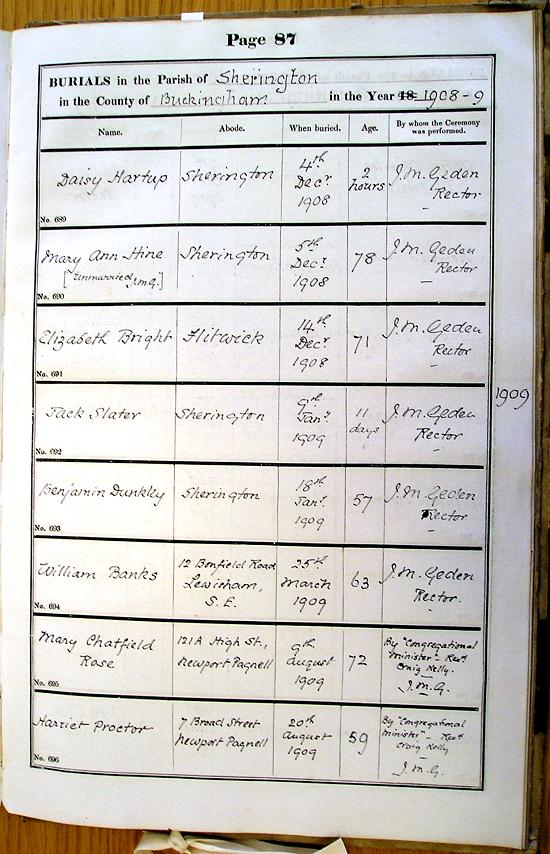 Page 87
BURIALS in the Parish of Sherington
in the County of Buckingham in the Year 18 1908-9
Name. Abode. When buried. Age. By whom the Ceremony was performed.
Daisy Hartup Sherington 4th Decr 1908 2 hours J.M. Geden Rector
No. 689
Mary Ann Hine Sherington 5th Decr 1908 78 J.M. Geden Rector
[Unmarried, J.M.G.]
No. 690
Elizabeth Bright Flitwick 14th Decr 1908 71 J.M. Geden Rector
No. 691
1909
Jack Slater Sherington 9th Jany 1909 11 days J.M. Geden Rector
No. 692
Benjamin Dunkley Sherington 18th Jany 1909 57 J.M. Geden Rector
No. 693
William Banks 12 Bonfield Road Lewisham, S.E. 25th March 1909 63 J.M. Geden Rector.
No. 694
Mary Chatfield Rose 121A High St., Newport Pagnell 9th August 1909 72 By "Congregational Minister" - Revd Craig Kelly. J.M.G.
No. 695
Harriet Proctor 7 Broad Street Newport Pagnell 20th August 1909 59 By "Congregational Minister" - Revd Craig Kelly J.M.G.
No. 696